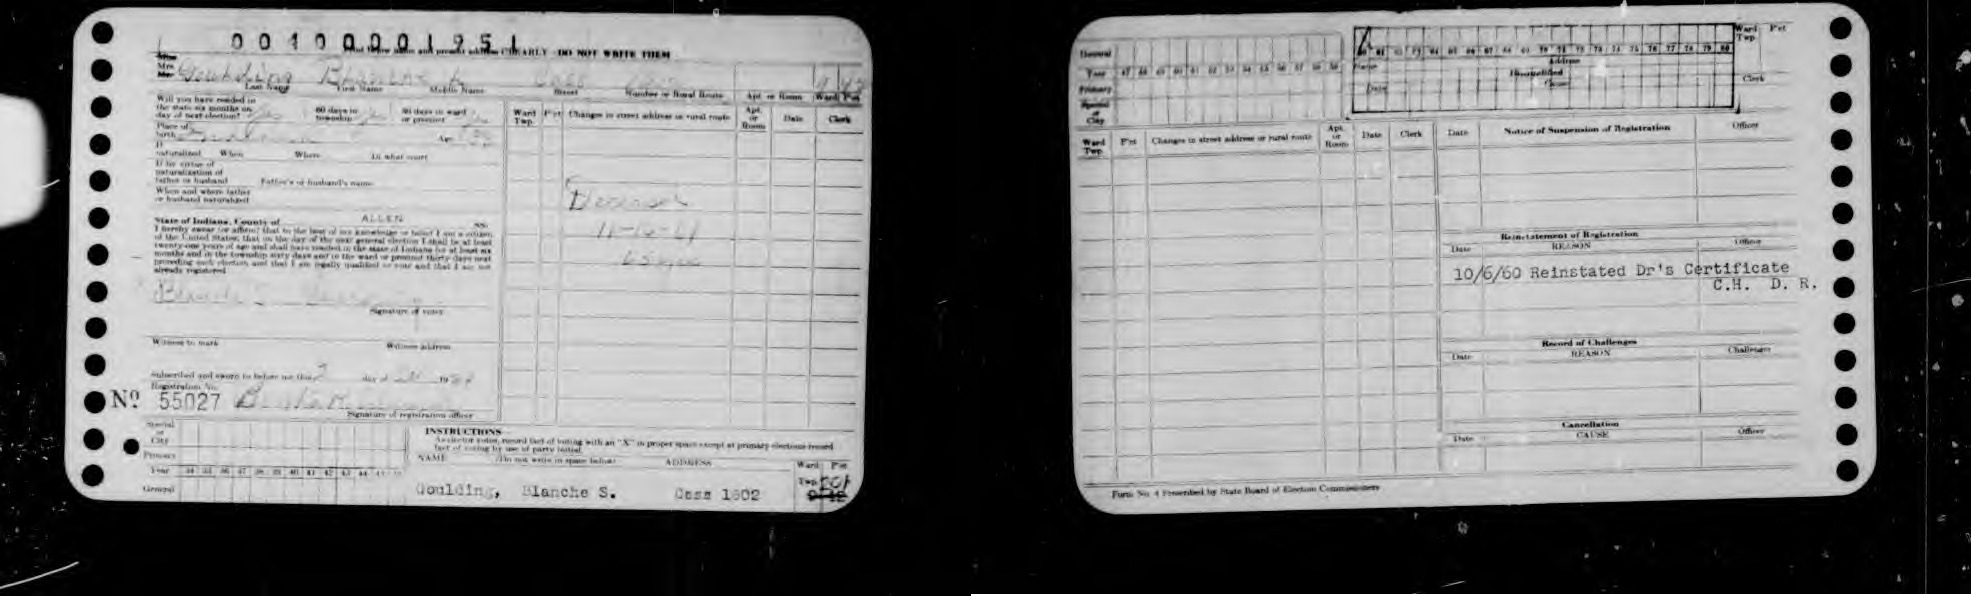 001000001951
CLEARLY - DO NOT WRITE THEM
Miss
Mrs.
Mr. Goulding Blanche S. Cass 1602 9 42
Last Name First Name Middle Name Street Number or Rural Route Apt. or Room Ward Pct
Will you have resided in
the state six months on 60 days in 30 days in ward
day of next election? Yes township or precinct
Place of
birth Indiana Age
If
naturalized When Where In what court
If by virtue of
naturalization of
father or husband Father's or husband's name
When and where father
or husband naturalized
Ward Twp. Pct Changes in street address or rural route Apt. or Room Date Clerk
Deceased
State of Indiana, County of ALLEN SS:
I hereby swear (or affirm) that to the best of my knowledge or belief I am a citizen
of the United States; that on the day of the next general election I shall be at least
twenty-one years of age and shall have resided in the state of Indiana for at least six
months and in the township sixty days and in the ward or precinct thirty days next
preceding such election and that I am legally qualified to vote and that I am not
already registered
Blanche S.
Signature of voter
Witness to mark Witness address
Subscribed and sworn to before me this day of 19
Registration No.
No 55027
Signature of registration officer
Special or City
Primary
Year 34 35 36 37 38 39 40 41 42 43 44 45
General
INSTRUCTIONS
As elector votes, record fact of voting with an "X" in proper space except at primary elections record
fact of voting by use of party initial.
NAME (Do not write in space below) ADDRESS Ward Twp. Pct
Goulding, Blanche S. Cass 1602
General
Year 47 48 49 50 51 52 53 54 55 56 57 58 59
Primary
Special or City
61 62 63 64 65 66 67 68 69 70 71 72 73 74 75 76 77 78 79 80
Name Address
Disqualified
Date Cause
Ward Twp. Pct
Clerk
Ward Twp. Pct Changes in street address or rural route Apt. or Room Date Clerk
Date Notice of Suspension of Registration Officer
Reinstatement of Registration
Date REASON Officer
10/6/60 Reinstated Dr's Certificate
C.H. D. R.
Record of Challenges
Date REASON Challenger
Cancellation
Date CAUSE Officer
Form No. 4 Prescribed by State Board of Election Commissioners